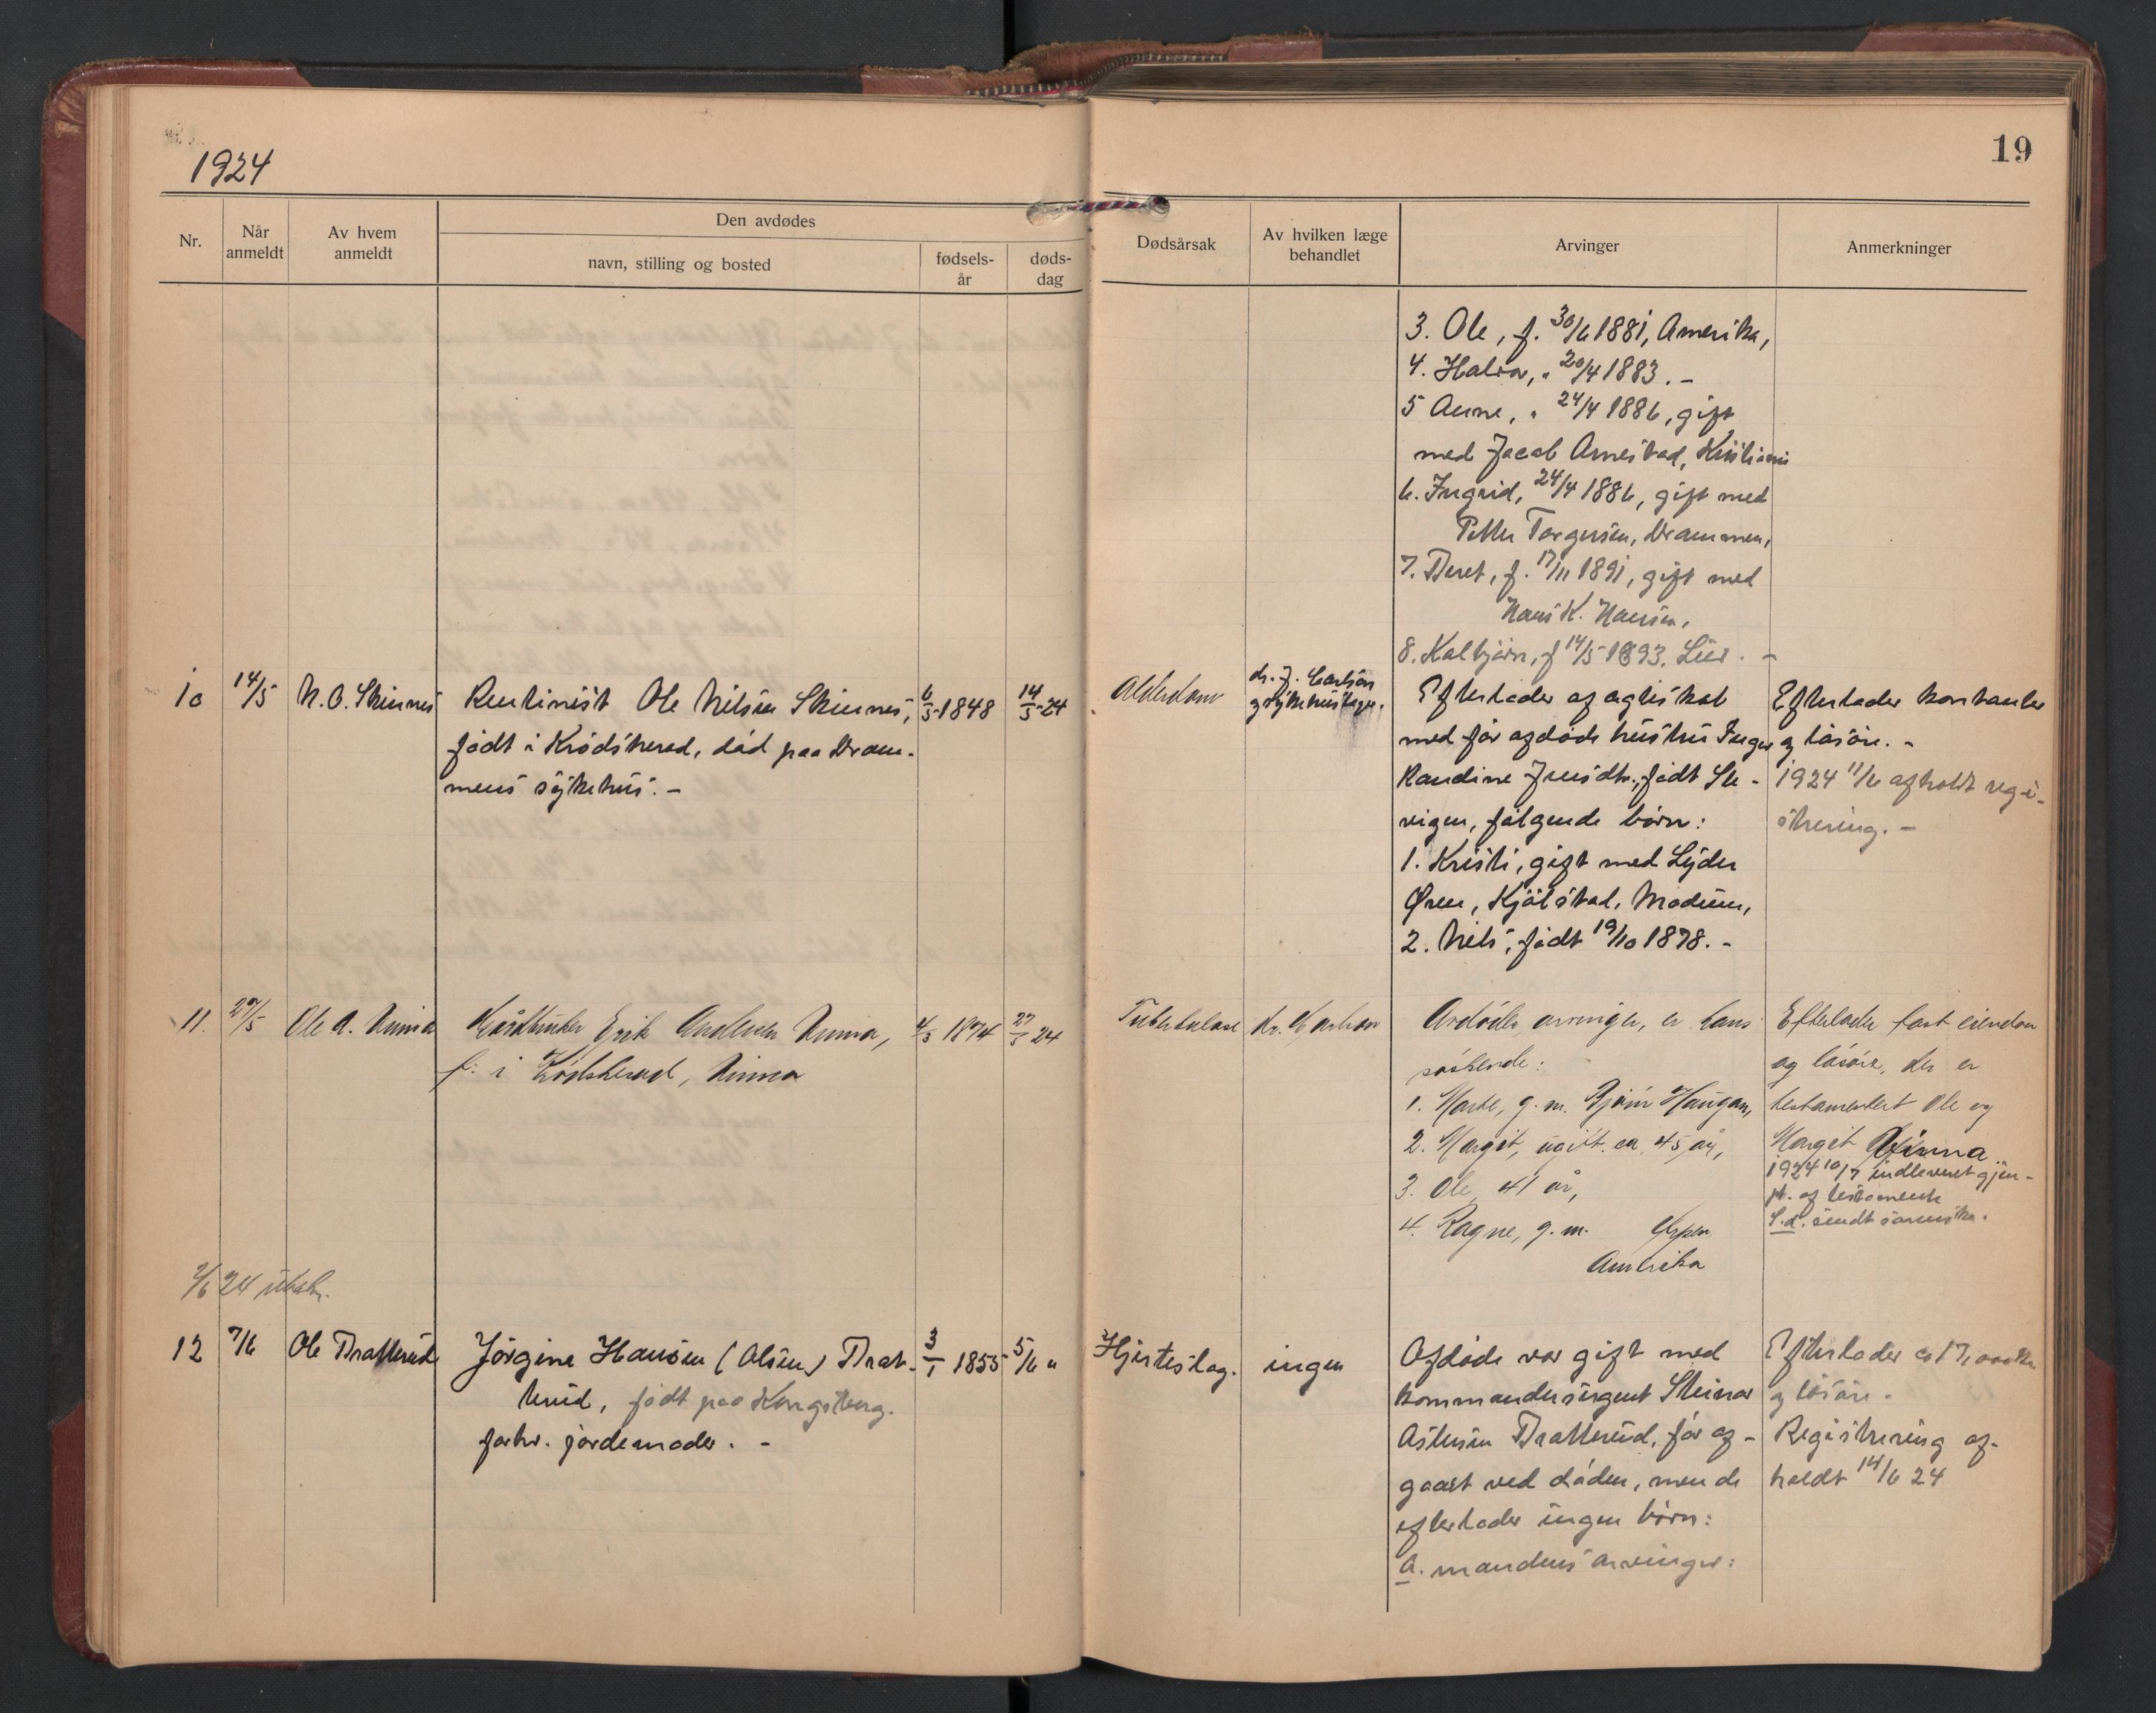 1924
19
Nr.
Når anmeldt
Av hvem anmeldt
Den avdødes
navn, stilling og bosted
fødsels-
år
døds-
dag
Dødsårsak
Av hvilken læge
behandlet
Arvinger
Anmerkninger
3. Ole, f. 30/6 1881, Amerika,
4. Halvor, " 20/4 1883. -
5 Anne, " 24/4 1886, gift
med Jacob Arnestad, Kristiania
6. Ingrid, 24/4 1886, gift med
Petter Torgersen, Drammen,
7. Beret, f. 17/11 1891, gift med
Hans K. Hansen,
8. Kolbjørn, f 14/5 1893. Lier. -
10
14/5
N. O. Skinnes
Rentinist Ole Nilsen Skinnes,
født i Krødsherad, død paa Dram-
mens sykehus. -
6/5 1848
14/5 24
Alderdom
dr. J. Carlson
og sykehuslægen.
Efterlader af ægteskab
med før afdøde hustru Inger
Randine Jensdtr., født Ste-
vigen, følgende børn:
1. Kristi, gift med Lyder
Øren, Kjølstad, Modum,
2. Nils, født 19/10 1878. -
Efterlader kontanter
og løsøre. -
1924 11/6 afholdt regi-
strering. -
11.
27/5
Ole A. Ninna
Erik Andersen Ninna,
f. i Krødsherad, Ninna
4/3 1874
27/5 24
Tuberkulose
dr. Carlson
Avdødes arvinger, er hans
søskende:
1. Marte, g. m. Bjørn Haugan,
2. Margit, ugift. ca 45 år,
3. Ole, 41 år,
4. Ragne, g. m. Espen
Amerika
Efterlader fast eiendom
og løsøre, der er
testamentert Ole og
Margit Ninna
1924 10/7 indleveret gjen-
pt. af testamente
S.d. sendt sorensk.
2/6 24 utskr.
12
7/6
Ole Bratterud
Jørgine Hansen (Olsen) Brat-
terud, født paa Kongsberg.
forhv. jordemoder. -
3/1 1855
5/6 "
Hjerteslag.
ingen
Afdøde var gift med
kommandersergent Steinar
Astensen Bratterud, før af-
gaaet ved døden, men de
efterlader ingen børn:
a. mandens arvinger:
Efterlader ca 17,000 kr
og løsøre.
Registrering af-
holdt 14/6 24